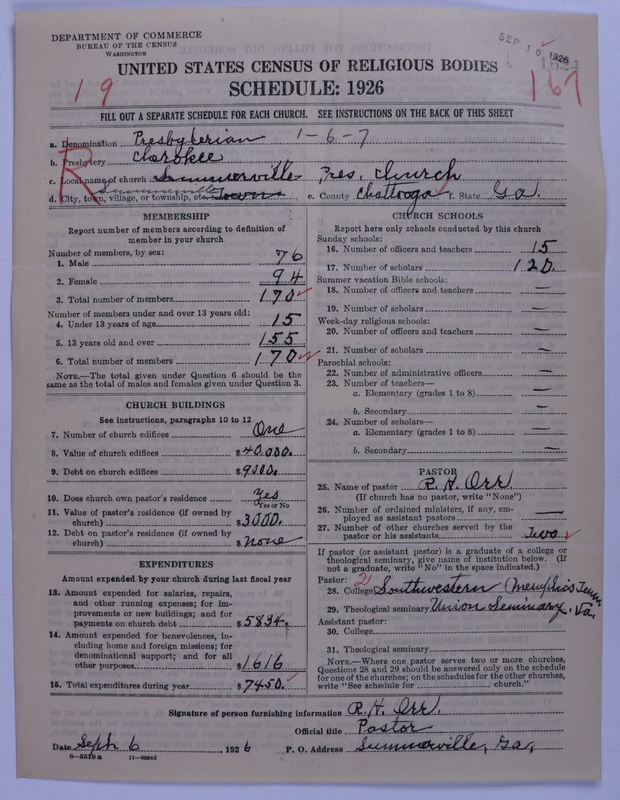 DEPARTMENT OF COMMERCE
BUREAU OF THE CENSUS
WASHINGTON
SEP 10 1926
UNITED STATES CENSUS OF RELIGIOUS BODIES
SCHEDULE: 1926
19
167
FILL OUT A SEPARATE SCHEDULE FOR EACH CHURCH. SEE INSTRUCTIONS ON THE BACK OF THIS SHEET
R
a. Denomination Presbyterian 1-6-7
b. Presbytery Cherokee
c. Local name of church Summerville Pres. Church
d. City, town, village, or township, etc. Summerville Town e. County Chattooga f. State Ga.
MEMBERSHIP
Report number of members according to definition of member in your church
Number of members, by sex:
1. Male 76
2. Female 94
3. Total number of members 170
Number of members under and over 13 years old:
4. Under 13 years of age 15
5. 13 years old and over 155
6. Total number of members 170
NOTE.—The total given under Question 6 should be
same as the total of males and females given under Question 3.
CHURCH BUILDINGS
See instructions, paragraphs 10 to 12
7. Number of church edifices One
8. Value of church edifices $40,000.
9. Debt on church edifices $9000.
10. Does church own pastor's residence Yes
Yes or No
11. Value of pastor's residence (if owned by
church) $3000.
12. Debt on pastor's residence (if owned by
church) $none
EXPENDITURES
Amount expended by your church during last fiscal year
13. Amount expended for salaries, repairs,
and other running expenses; for im-
provements or new buildings; and for
payments on church debt $5834.
14. Amount expended for benevolences, in-
cluding home and foreign missions; for
denominational support; and for all
other purposes $1616
15. Total expenditures during year $7450.
CHURCH SCHOOLS
Report here only schools conducted by this church
Sunday schools:
16. Number of officers and teachers 15
17. Number of scholars 120.
Summer vacation Bible schools:
18. Number of officers and teachers —
19. Number of scholars —
Week-day religious schools:
20. Number of officers and teachers —
21. Number of scholars —
Parochial schools:
22. Number of administrative officers —
23. Number of teachers—
a. Elementary (grades 1 to 8) —
b. Secondary —
24. Number of scholars—
a. Elementary (grades 1 to 8) —
b. Secondary —
PASTOR
25. Name of pastor R. H. Orr
(If church has no pastor, write "None")
26. Number of ordained ministers, if any, em-
ployed as assistant pastors —
27. Number of other churches served by the
pastor or his assistants Two
If pastor (or assistant pastor) is a graduate of a college or
theological seminary, give name of institution below. (If
not a graduate, write "No" in the space indicated.)
Pastor: 2
28. College Southwestern (Memphis Tenn.
29. Theological seminary Union Seminary, Va.
Assistant pastor:
30. College
31. Theological seminary
NOTE.—Where one pastor serves two or more churches,
Questions 28 and 29 should be answered only on the schedule
for one of the churches; on the schedules for the other churches,
write "See schedule for church."
Signature of person furnishing information R. H. Orr.
Official title Pastor
Date Seph 6, 1926 P. O. Address Summerville, Ga,
8-5518 a